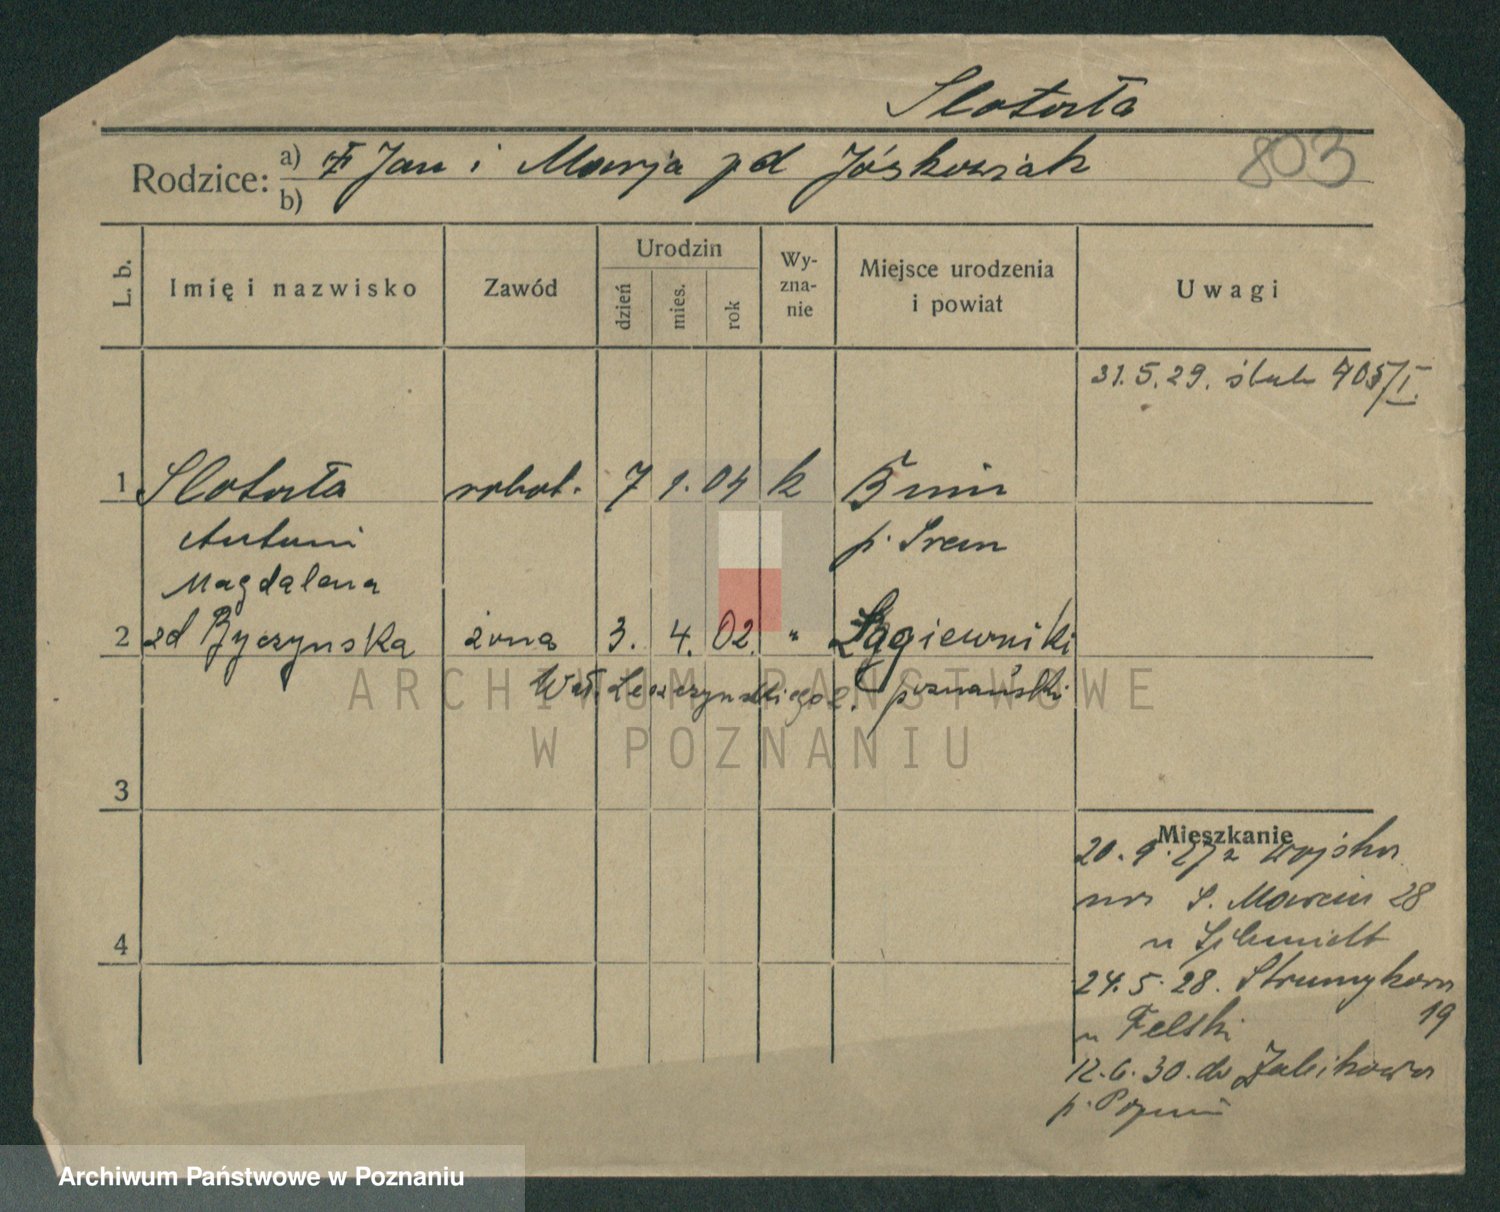 Slotała
Rodzice: a) Jan i Marja zd Jóskowiak
b)
803
L. b.
Imię i nazwisko
Zawód
Urodzin
dzień
mies.
rok
Wy-
zna-
nie
Miejsce urodzenia
i powiat
Uwagi
31.5.29. ślub 705/I.
1 Slotała robot. 7 1. 04 k Bnin
Antoni p. Śrem
Magdalena
2 zd Ryczyńska żona 3. 4. 02. " Łagiewniki
Leszczyńskiego poznański
3
Mieszkanie
20.9.27 z wojska
na S. Marcin 28
u Schmidt
24.5.28. Strumykowa
19
u Felski
12.6.30. do Żabikowa
p. Poznań
4
ARCHIWUM PAŃSTWOWE
W POZNANIU
Archiwum Państwowe w Poznaniu